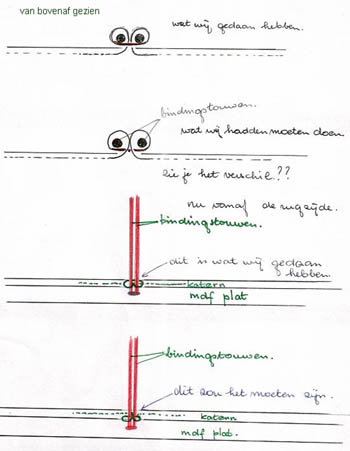 van bovenaf gezien
wat wij gedaan hebben.
bindingstouwen.
wat wij hadden moeten doen
zie je het verschil??
nu vanaf de rugzijde.
bindingstouwen.
dit is wat wij gedaan
hebben.
katern
mdf plat
bindingstouwen.
dit zou het moeten zijn.
katern
mdf plat.